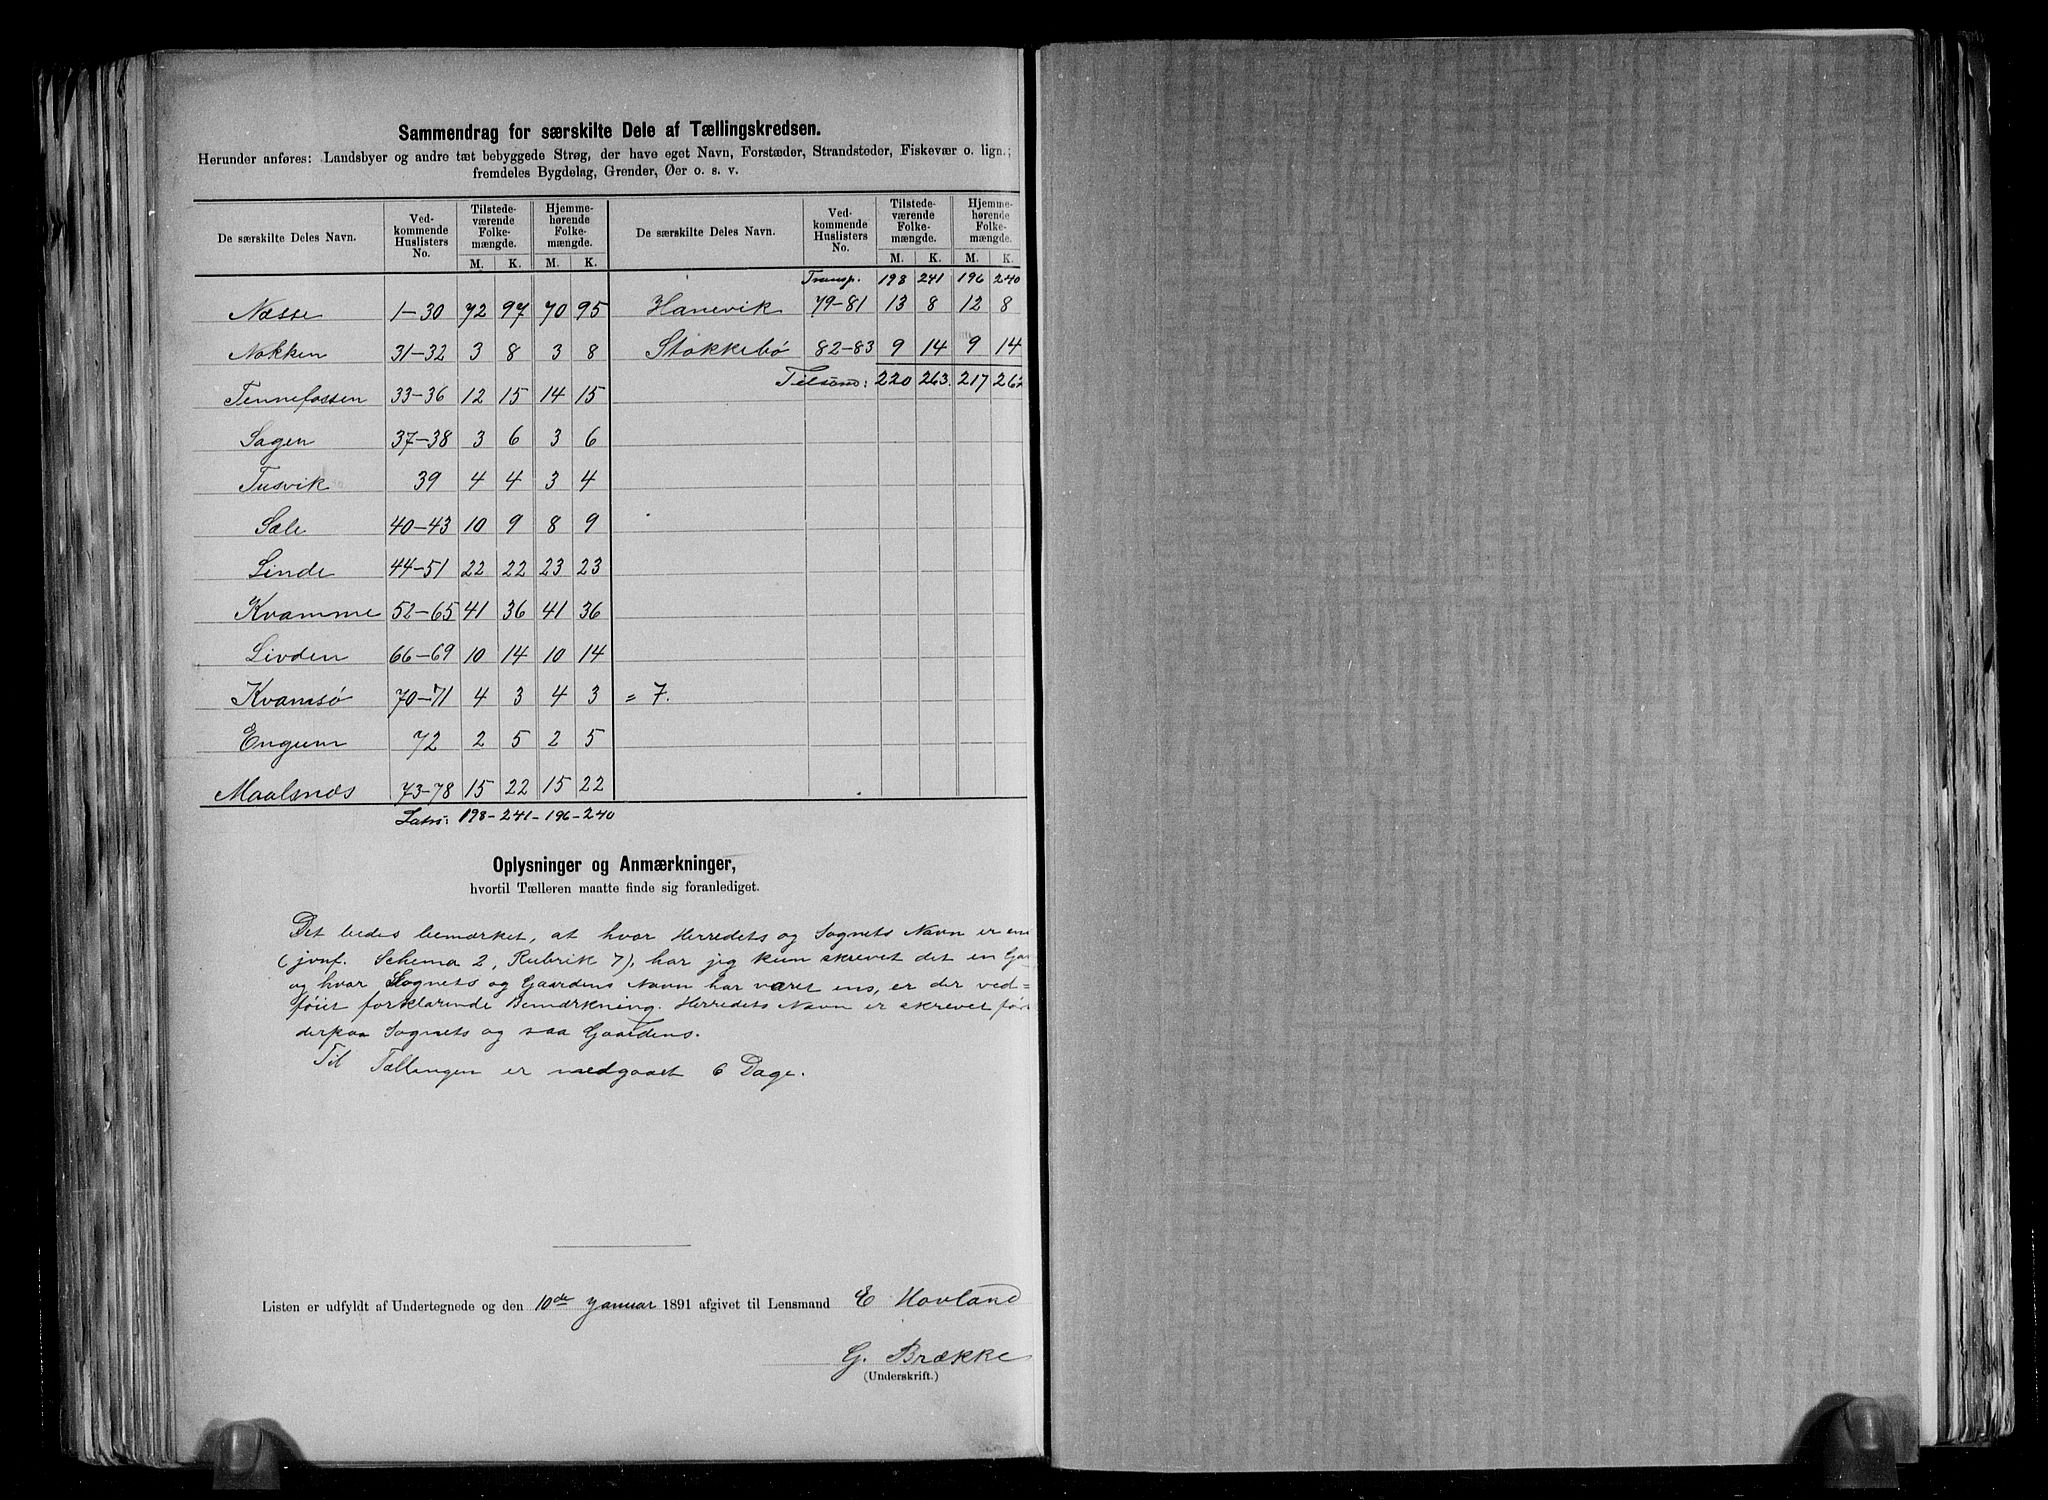 Sammendrag for særskilte Dele af Tællingskredsen.
Herunder anføres: Landsbyer og andre tæt bebyggede Strøg, der have eget Navn, Forstæder, Strandsteder, Fiskevær o. lign.;
fremdeles Bygdelag, Grender, Øer o. s. v.
De særskilte Deles Navn. Vedkommende Huslisters No. Tilstedeværende Folkemængde. M. K. Hjemmehørende Folkemængde. M. K.
Næsse 1-30 72 97 70 95
Nokken 31-32 3 8 3 8
Tennefossen 33-36 12 15 14 15
Sagen 37-38 3 6 3 6
Tusvik 39 4 4 3 4
Sæle 40-43 10 9 8 9
Linde 44-51 22 22 23 23
Kvamme 52-65 41 36 41 36
Livden 66-69 10 14 10 14
Kvamsö 70-71 4 3 4 3 = 7.
Engum 72 2 5 2 5
Maalsnæs 73-78 15 22 15 22
Lats: 198-241-196-240
De særskilte Deles Navn. Vedkommende Huslisters No. Tilstedeværende Folkemængde. M. K. Hjemmehørende Folkemængde. M. K.
Transp. 198 241 196 240
Hanevik 79-81 13 8 12 8
Stokkebö 82-83 9 14 9 14
Tilsam: 220 263. 217 262
Oplysninger og Anmærkninger,
hvortil Tælleren maatte finde sig foranlediget.
Det bedes bemærket, at hvor Herredets og Sognets Navn er ens
(jvnf. Schema 2, Rubrik 7), har jeg kun skrevet det en
og hvor Sognets og Gaardens Navn har været ens, er der ved=
föiet forklarende Bemærkning. Herredets Navn er skrevet
derpaa Sognets og saa Gaardens.
Til Tællingen er medgaaet 6 Dage.
Listen er udfyldt af Undertegnede og den 10de Januar 1891 afgivet til Lensmand E Hovland
G. Brække
(Underskrift.)